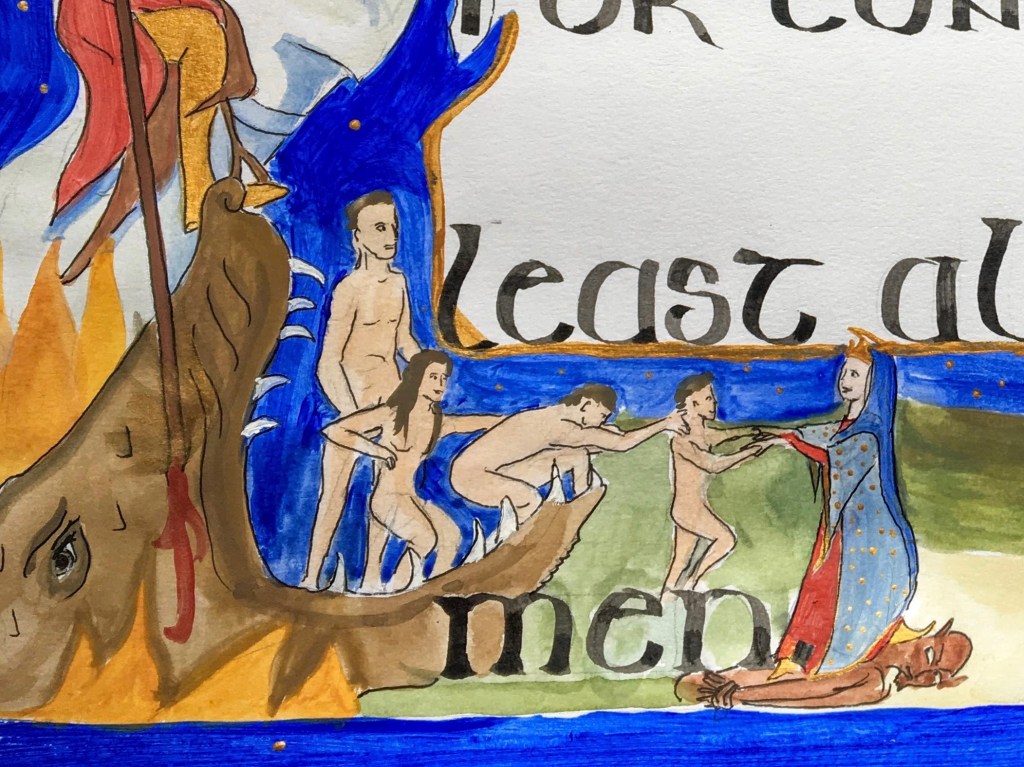 for con
least al
men